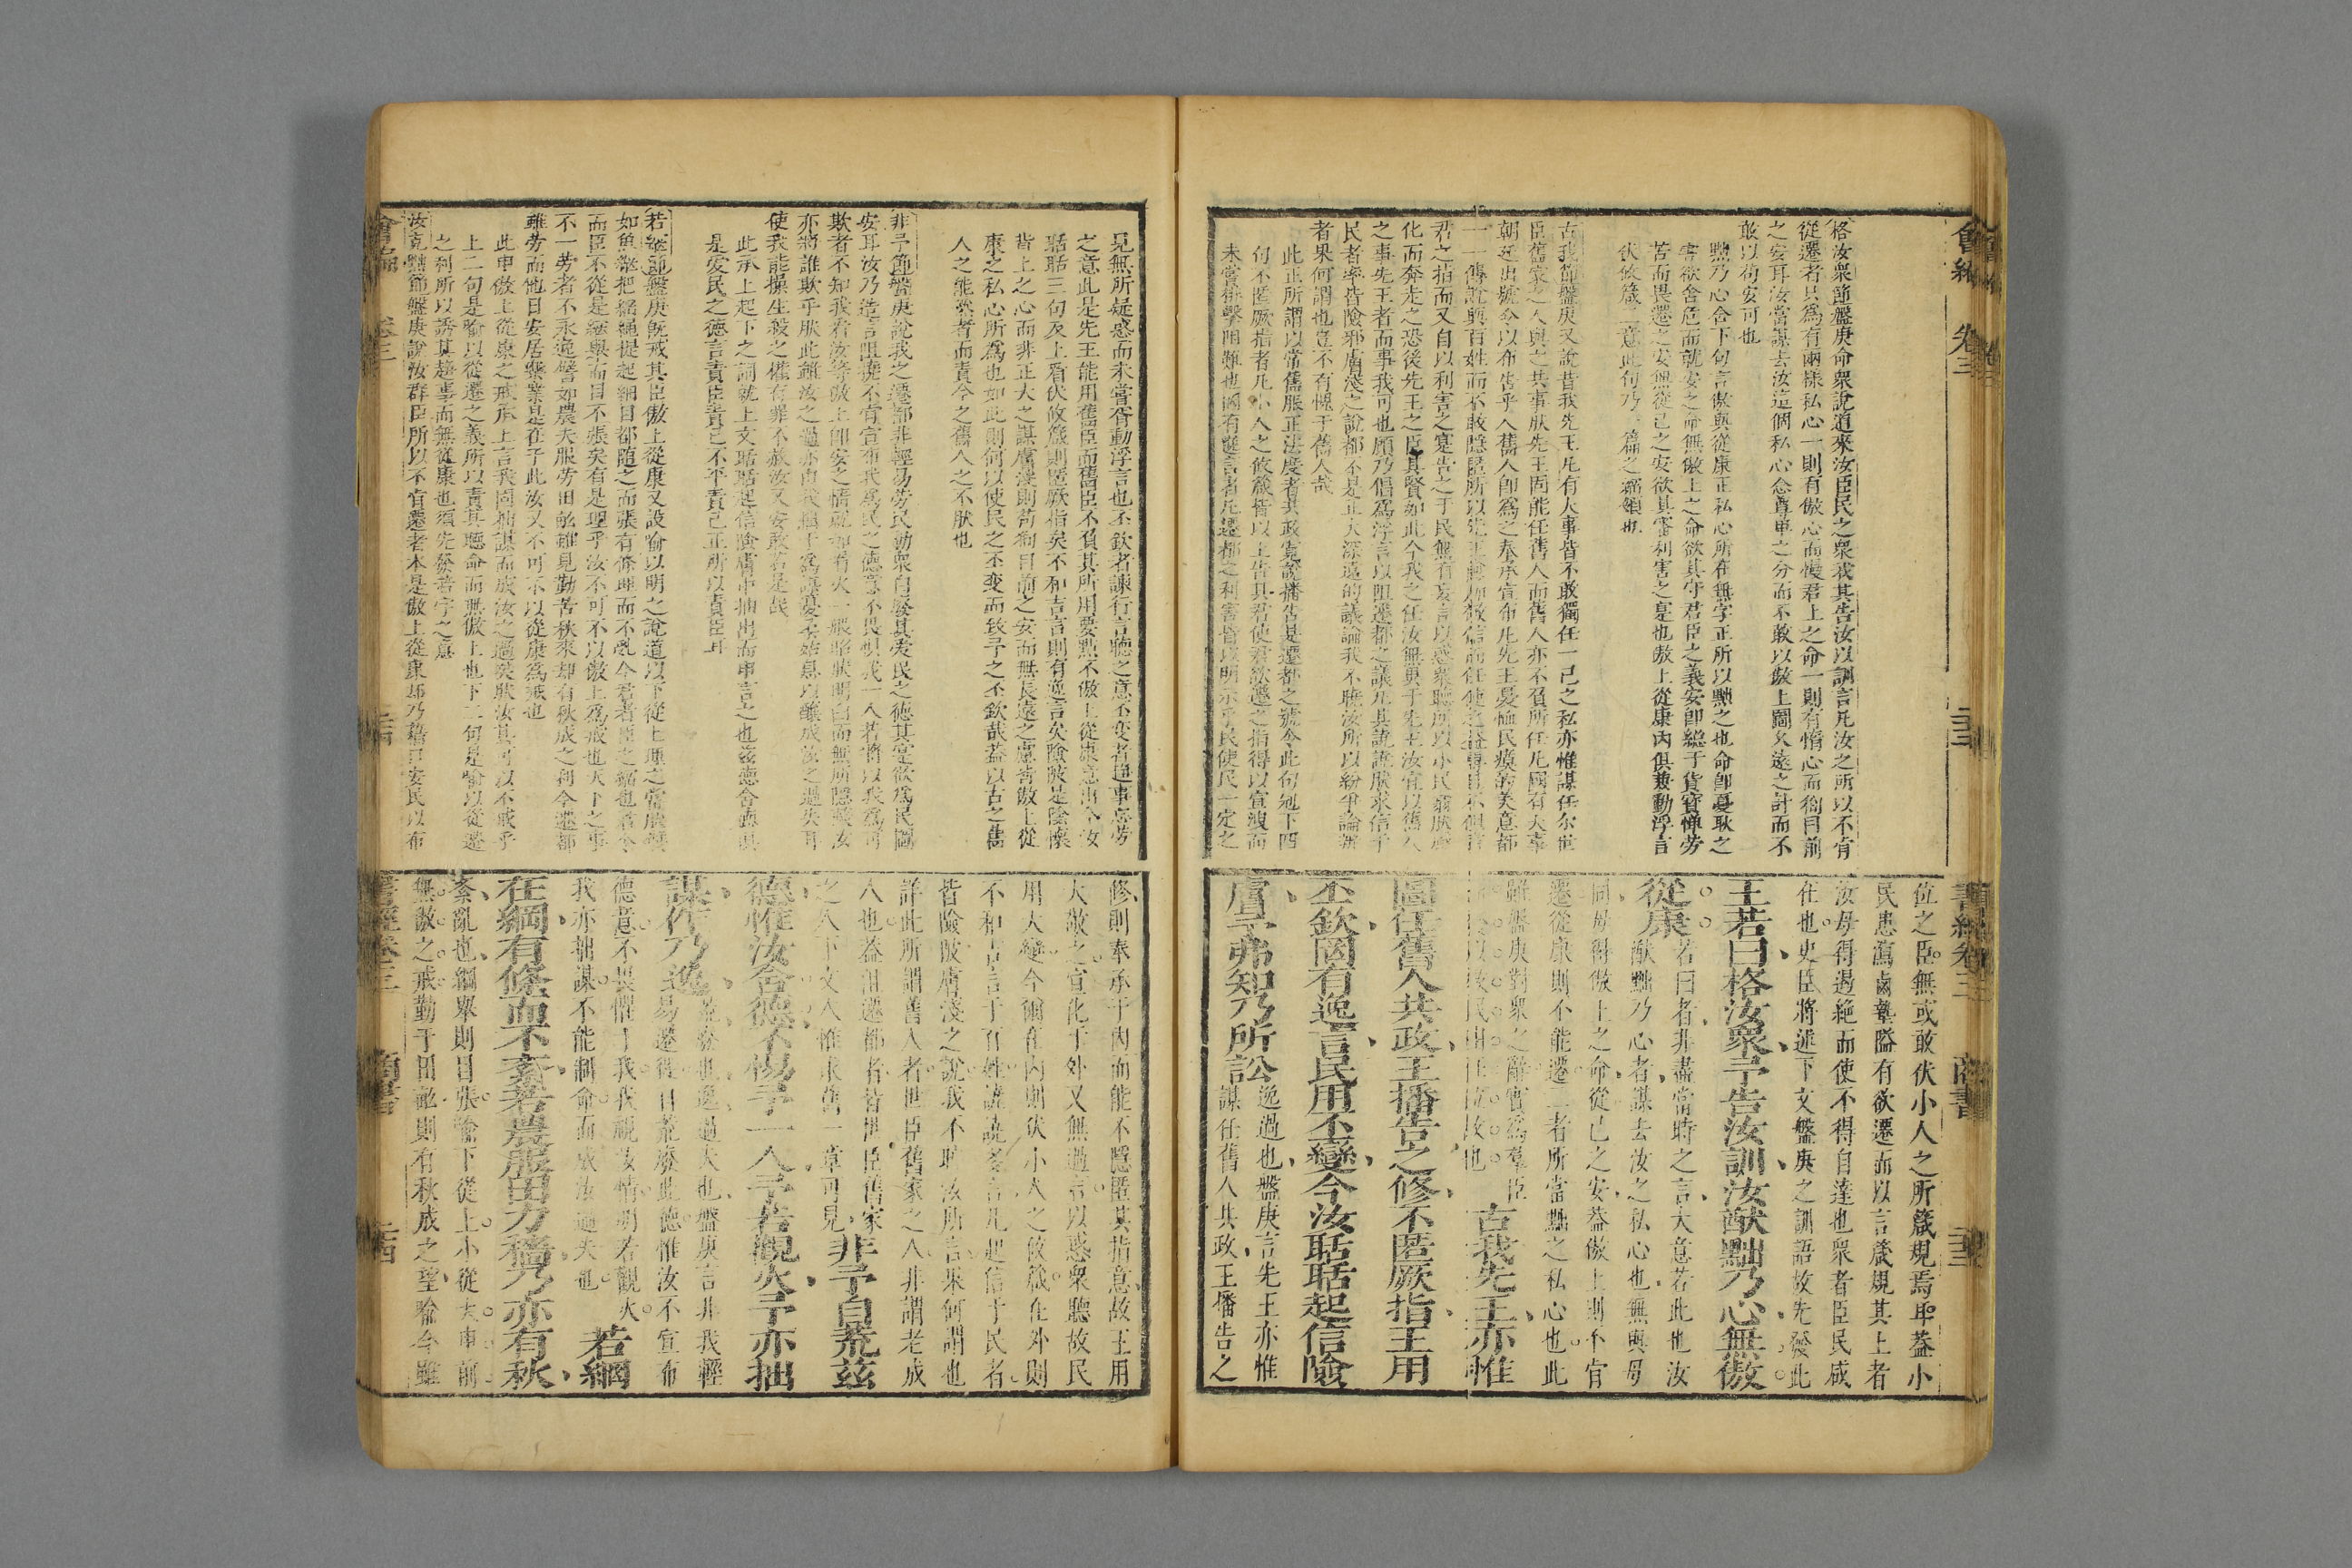 會編 卷三
格汝衆節盤庚命衆說道來汝臣民之衆我其告汝以訓言凡汝之所以不肯
從遷者只爲有兩樣私心一則有傲心而慢君上之命一則有惰心而徇目前
之安耳汝當謀去汝這個私心念尊卑之分而不敢以傲上圖久遠之計而不
敢以苟安可也
黜乃心合下句言傲與從康正私心所在無字正所以黜之也
苦而畏遷之安無從己之安欲其審利害之寔也傲上從康內俱兼動浮言
伏攸箴二意此句乃一篇之綱領也
古我節盤庚又說昔我先王凡有大事皆不敢獨任一己之私亦惟謀任尔世
臣舊家之人與之共事肰先王固能任舊人而舊人亦不負所任凡國有大事
朝廷出號令以布告乎人舊人卽爲之奉承宣布凡先王憂恤民瘼的美意都
一一傳說與百姓而不敢隱匿所以先王
君之指而又自以利害之寔告之于民無有妄言以惑衆聽所以小民
化而奔走之恐後先王之臣其賢如此今我之任汝無異于先王汝宜以舊人
之事先王者而事我可也顧乃倡爲浮言以阻遷都之議凡其說
民者率皆險邪膚淺之說都不是正大深遠的議論我不曉汝所以紛爭論辯
者果何謂也豈不有愧于舊人哉
此正所謂以常舊服正法度者共政寬說播告是遷都之號令此句包下四
何不匿厥指者凡小人之攸箴皆以上告其君使君欲遷之指得以宣洩而
未嘗排擊阻難也罔有逸言者凡遷都之利害皆以明示乎民使民一定之
書經卷三 商書
位之臣無或敢伏小人之所箴規焉耳蓋小
民患瀉鹵墊隘有欲遷而以言箴規其上者
汝毋得遏絶而使不得自達也衆者臣民咸
在也史臣將述下文盤庚之訓語故先發此
王若曰格汝衆予告汝訓汝猷黜乃心無傲
從康
若曰者非盡當時之言大意若此也汝
猷黜乃心者謀去汝之私心也無與毋
同毋得傲上之命從己之安蓋傲上則不肯
遷從康則不能遷二者所當黜之私心也此
雖盤庚對衆之辭實爲羣臣
古我先王亦惟
圖任舊人共政王播告之修不匿厥指王用
丕欽罔有逸言民用丕變今汝聒聒起信險
膚予弗知乃所訟
逸過也盤庚言先王亦惟
謀任舊人共政王播告之
見無所疑惑而未嘗胥動浮言也丕欽者諫行言聽之意丕变者趨事忘劳
之意此是先王能用舊臣而舊臣不負其所用要點不傲上從康意出今汝
聒聒三句反上看伏攸箴則匿厥指矣不和吉言則有逸言矣險陂是險懷
背上之心而非正大之謀膚淺則苟徇目前之安而無長遠之慮皆傲上從
康之私心所爲也如此則何以使民之丕变而致予之丕欽哉蓋以古之舊
人之能然者而責今之舊人之不肰也
非予節盤庚說我之遷都非輕易劳民動衆自廢其愛民之德其寔欲爲民圖
安耳汝乃造言阻撓不肯宣布我爲民之德意不畏惧我一人若將以我爲可
欺者不知我看汝等傲上卽安之情就如看火一般昭肰明白而無所隱藏汝
亦將誰欺乎肰此雖汝之過亦由我
使我能操生殺之權有罪不赦汝又安敢若是哉
此承上起下之詞就上文聒聒起信險膚中抽出而申言之也茲德含德俱
是愛民之德言責臣責己不平責己正所以責臣耳
若網節盤庚旣戒其臣傲上從康又設喻以明之說道以下從上理之當肰譬
如魚網把綱繩提起網目都隨之而張有條理而不乱今君者臣之綱也君令
而臣不從是綱舉而目不張矣有是理乎汝不可不以傲上爲戒也天下之事
不一劳者不永逸譬如農夫服劳田畝雖見勤苦秋來却有秋成之利今遷都
雖劳而他日安居樂業是在于此汝又不可不以從康爲戒也
此申傲上從康之戒承上言我固拙謀而成汝之過矣肰汝其可以不戒乎
上二句是喻以從遷之義所以責其聽命而無傲上也下二句是喻以從遷
之利所以誘其趨事而無從康也須先發若字之意
汝克黜節盤庚說汝群臣所以不肯遷者本是傲上從康却乃藉口安民以布
修則奉承于內而能不隱匿其指意故王用
大敬之宣化于外又無過言以惑衆聽故民
用大變今爾在內則伏小人之攸箴在外則
不和吉言于百姓譊譊多言凡起信于民者
皆險陂膚淺之說我不曉汝所言果何謂也
詳此所謂舊人者世臣舊家之人非謂老成
人也蓋沮遷都者皆世臣舊家
之人下文人惟求舊一章可見
非予自荒茲
德惟汝含德不惕予一人予若觀火予亦拙
謀作乃逸
荒廢也逸過失也盤庚言非我輕
易遷徙自荒廢此德惟汝不宣布
德意不畏懼于我我視汝情明若觀火
我亦拙謀不能制命而成汝過失也
若網
在綱有條而不紊若農服田力穡乃亦有秋
紊亂也綱舉則目張喻下從上小從大申前
無傲之戒勤于田畝則有秋成之望喻今雖